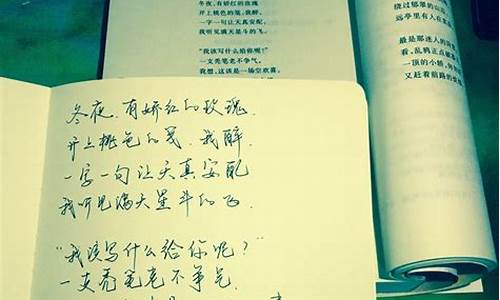 冬夜,有娇红的玫瑰
开上桃色的笺,我醉,
一字一句让天真安配,
我听见满天星斗的飞。
“我该写什么给你呢?”
一支秃笔老不争气。
我想,这该是一场空欢喜。
绕过郁翠的山
远亭里有人在
最是那迷人的
看,乱鸦正点破
一顶的小轿,
又赶着前路的
冬夜,有娇红的玫瑰,
开上桃色的笺,我醉,
一字一句让天真安配
我听见满天星斗的飞。
“我该写什么给你呢?”
一支秃笔老不争气.